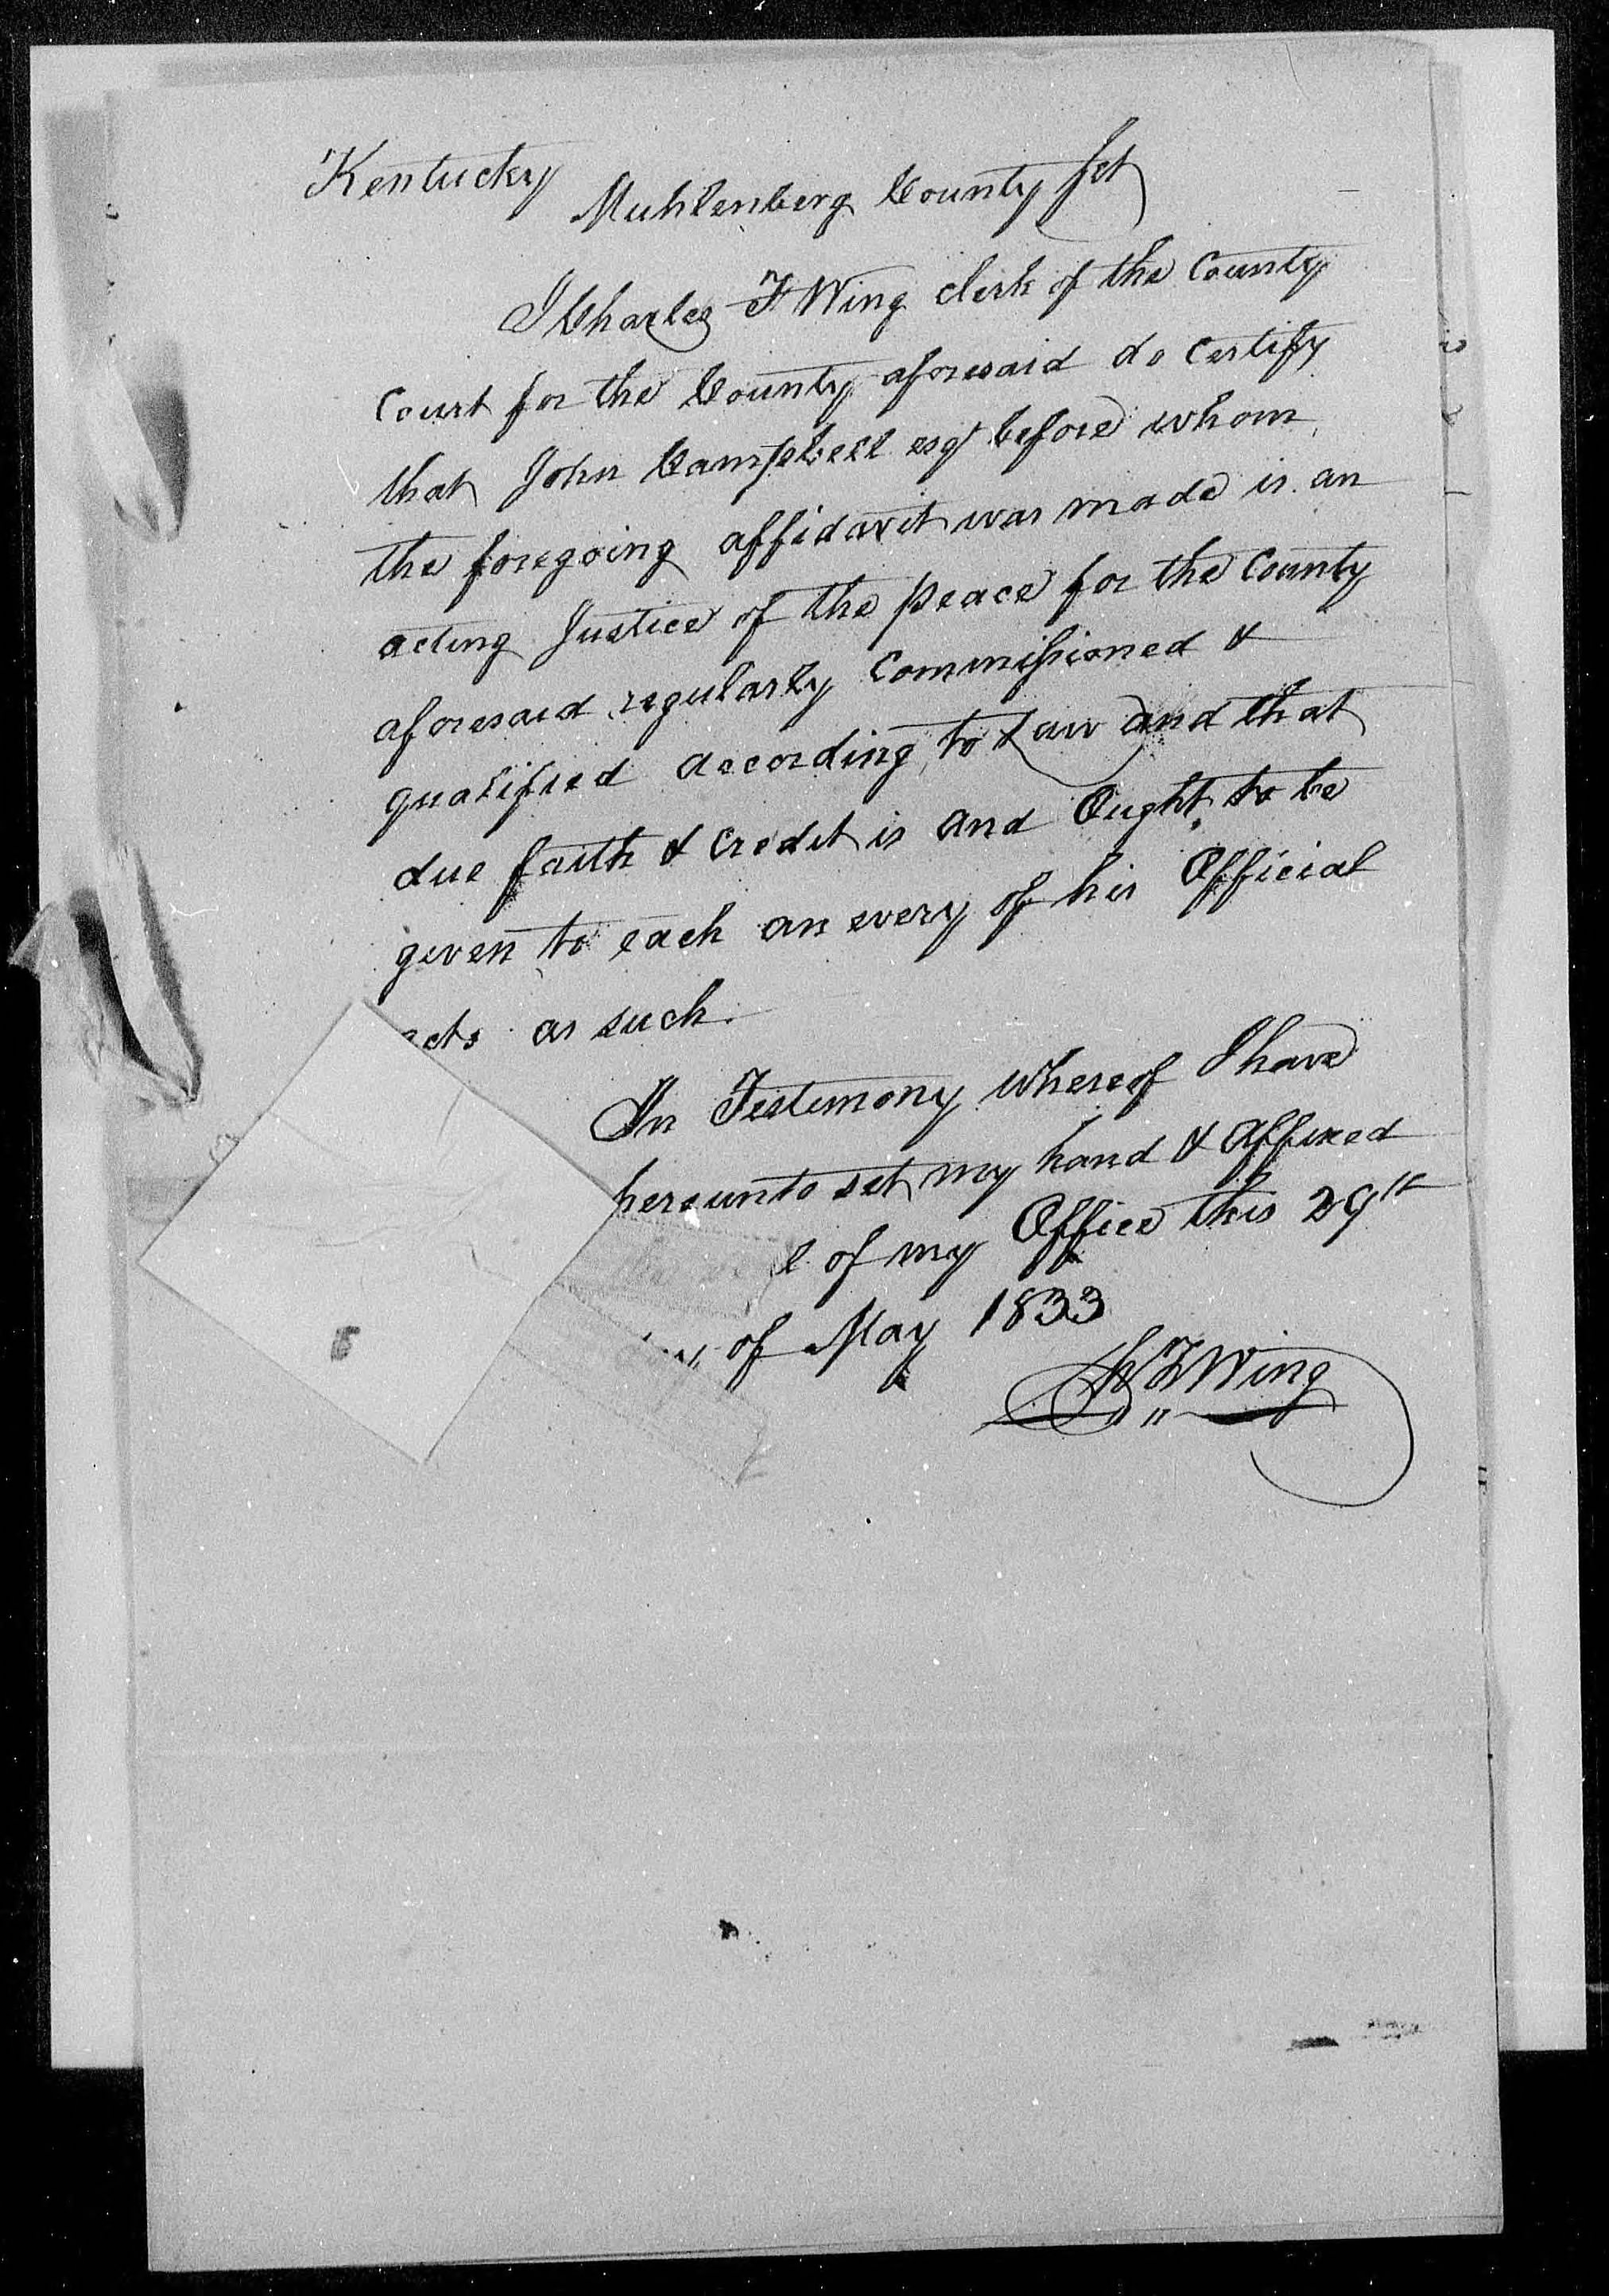 Kentucky
Muhlenberg County Sct
I Charles F Wing clerk of the County
Court for the County aforesaid do Certify
that John Campbell esqr before whom
the foregoing affidavit was made is an
acting Justice of the peace for the County
aforesaid regularly Commissioned &
qualified according to Law and that
due faith & Credit is and Ought to be
given to each an every of his Official
acts as such.
In Testimony whereof I have
hereunto set my hand & Affixed
l of my Office this 29th
of May 1833
Ch F Wing